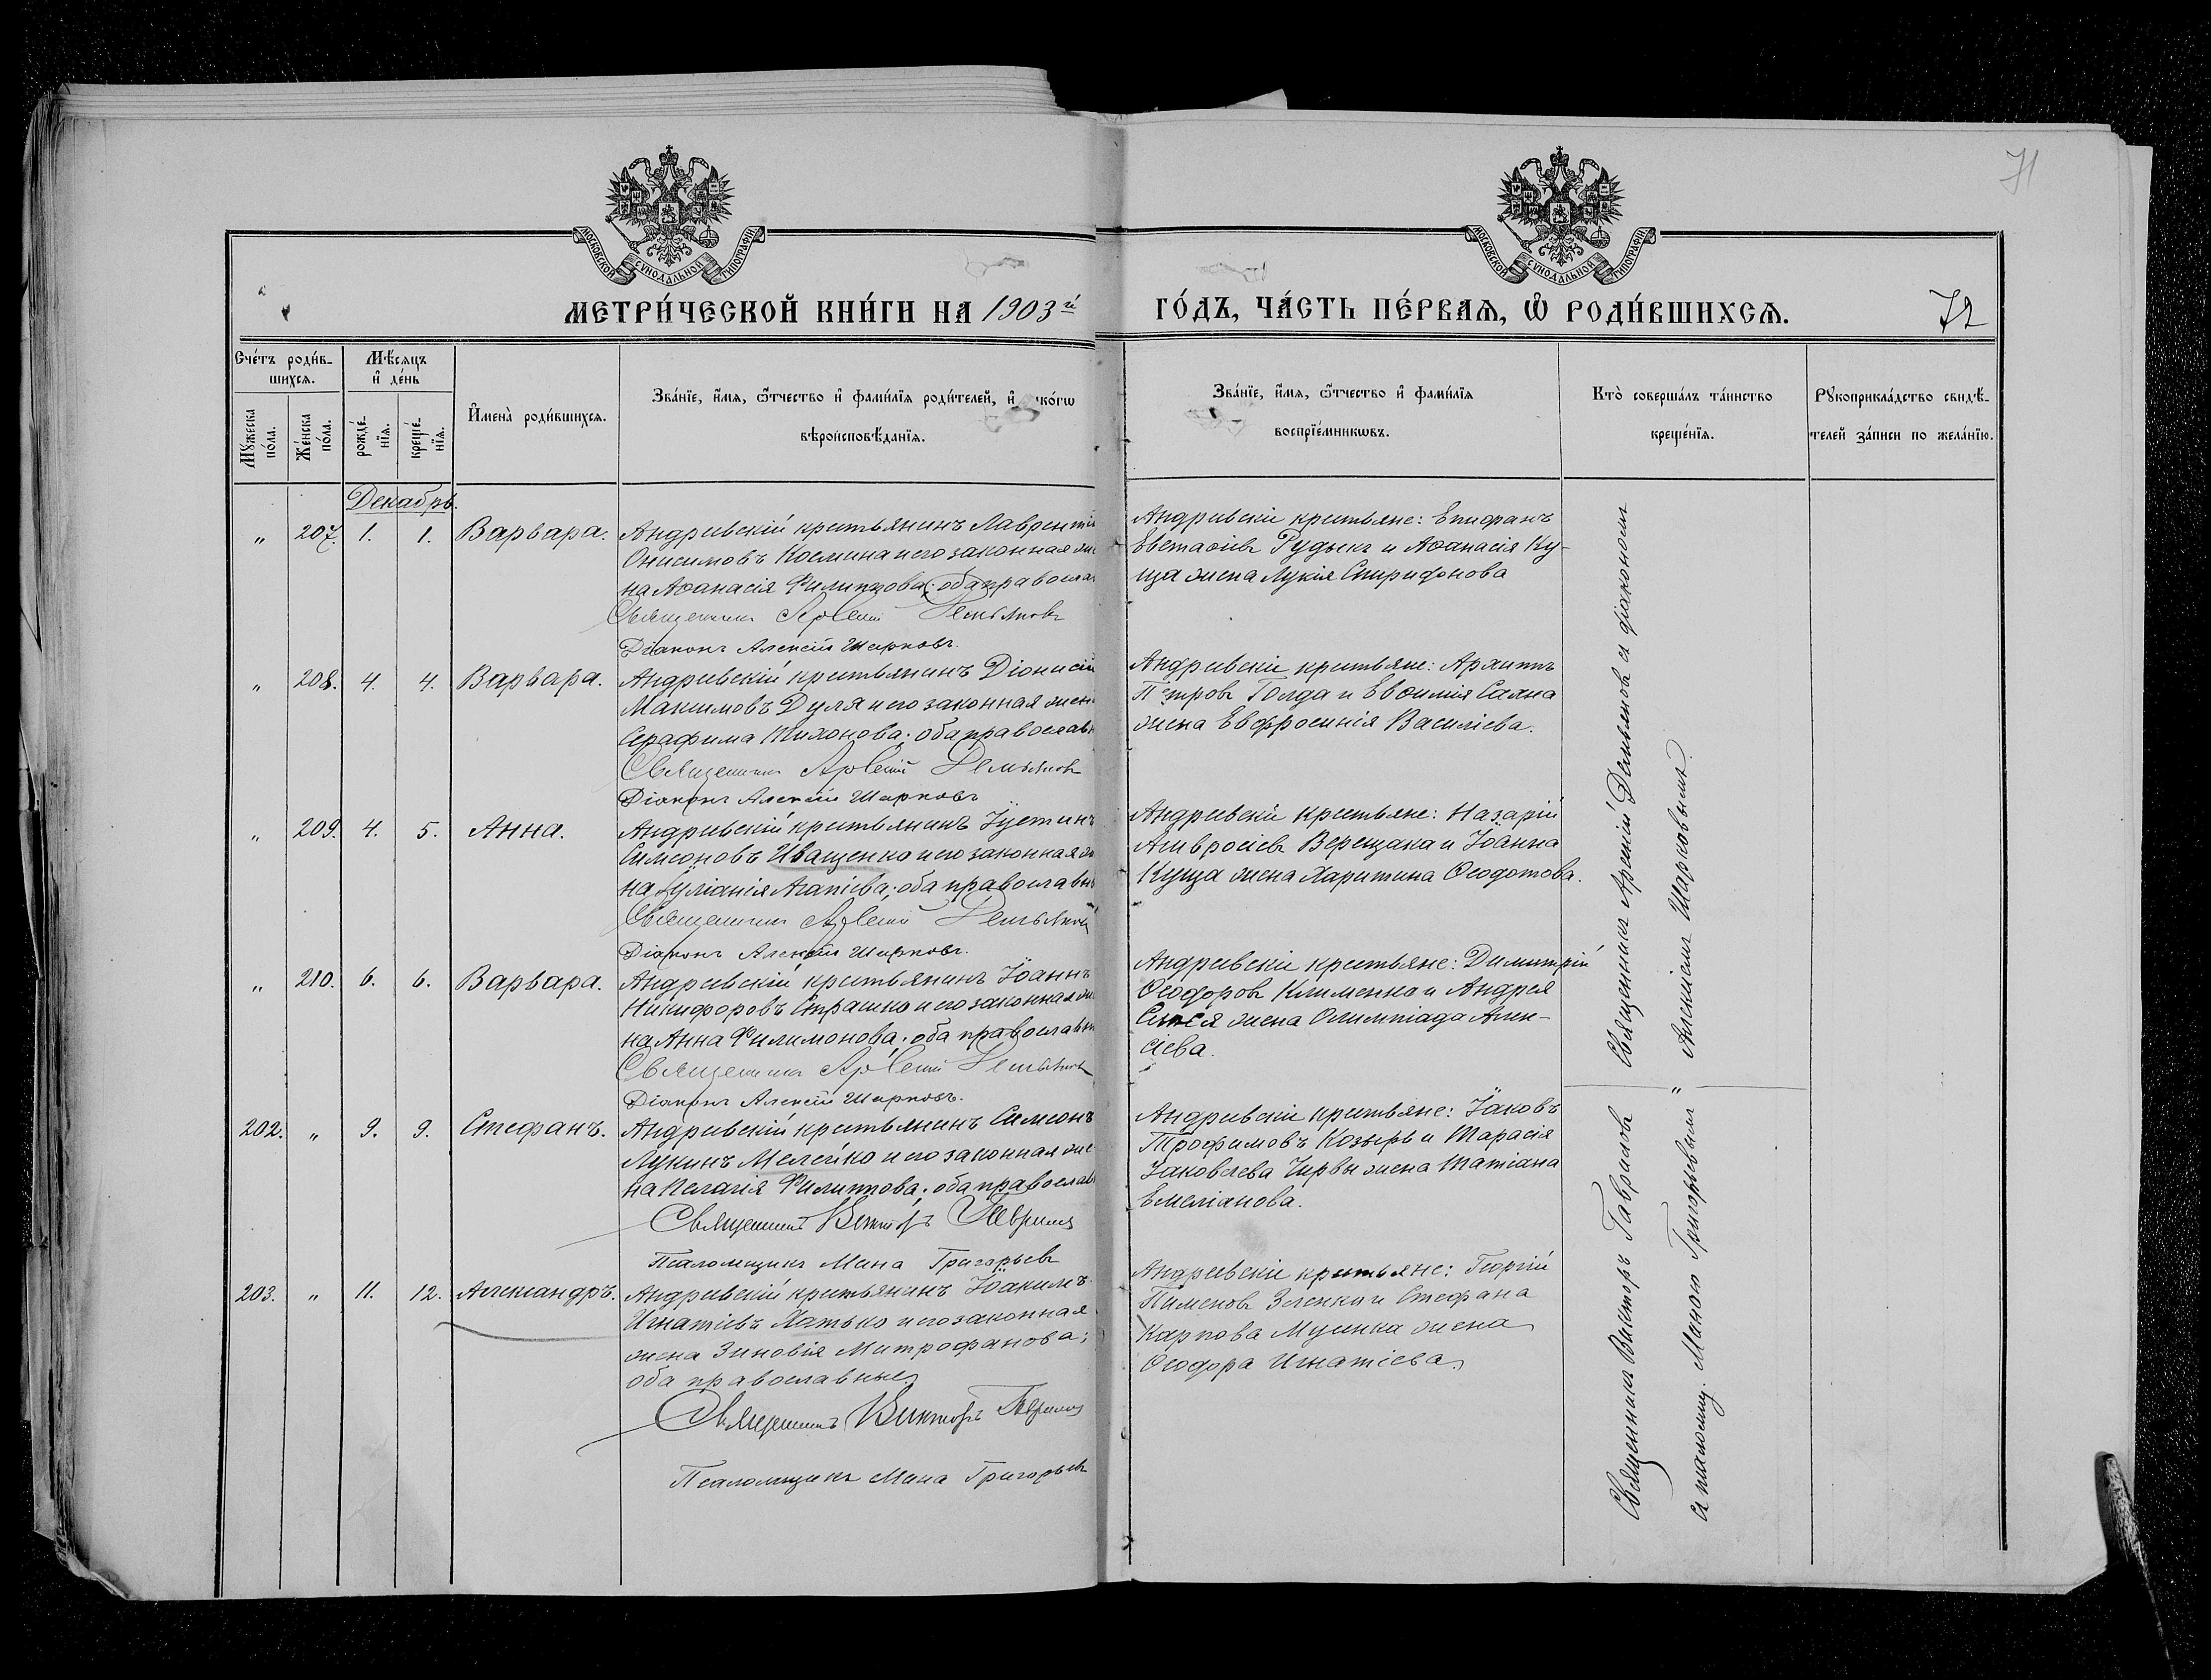 71
МОСКОВСКОЙ СѴНОДАЛЬНОЙ ТИПОГРАФІИ
МОСКОВСКОЙ СѴНОДАЛЬНОЙ ТИПОГРАФІИ
МЕТРИ́ЧЕСКОЙ КНИ́ГИ НА 1903й
ГО́ДЪ, ЧА́СТЬ ПЕ́РВАѦ, Ѽ РОДИ́ВШИХСѦ.
72
Сче́тъ роди́в-
шихсѧ.
Мꙋжеска по́ла.
Же́нска по́ла.
Мѣ́сѧцъ
и҆ де́нь
рожде́-
нїѧ.
креще́-
нїѧ.
И҆мена̀ роди́вшихсѧ.
Зва́нїе, и҆́мѧ, ѻ҆́тчество и҆ фами́лїѧ роди́телей, и҆ ко́гѡ
вѣроисповѣ́данїѧ.
Зва́нїе, и҆́мѧ, ѻ҆́тчество и҆ фами́лїѧ
воспрїе́мникѡвъ.
Кто̀ соверша́лъ та́инство
креще́нїѧ.
Рꙋкоприкла́дство свидѣ́-
телей за́писи по жела́нїю.
Декабрь.
„ 207. 1. 1. Варвара.
Андреевскій крестьянинъ Лаврентій
Онисимовъ Космина и его законная же
на Аѳанасія Филиппова; оба православ
Священникъ Арсеній Демьяновъ
Діаконъ Алексій Шарковъ.
Андреевскіе крестьяне: Епифанъ
Евстаѳіевъ Рудыкъ и Аѳанасія Ку-
ща жена Лукія Спиридонова
„ 208. 4. 4. Варвара.
Андреевскій крестьянинъ Діонисій
Максимовъ Дуля и его законная жен
Серафима Тихонова; оба православн
Священникъ Арсеній Демьяновъ
Діаконъ Алексій Шарковъ
Андреевскіе крестьяне: Архипъ
Петровъ Голда и Евѳимія Саяна
жена Евфросинія Василіева.
„ 209. 4. 5. Анна.
Андреевскій крестьянинъ Іустинъ
Симеоновъ Иващенко и его законная же
на Іуліанія Агапіева; оба православн
Священникъ Арсеній Демьяновъ
Діаконъ Алексій Шарковъ.
Андреевскіе крестьяне: Назарій
Амвросіевъ Верещака и Іоанна
Куща жена Харитина Ѳеодотова.
„ 210. 6. 6. Варвара.
Андреевскій крестьянинъ Іоаннъ
Никифоровъ Страшко и его законная же
на Анна Филимонова; оба православн
Священникъ Арсеній Демьяновъ
Діаконъ Алексій Шарковъ.
Андреевскіе крестьяне: Димитрій
Ѳеодоровъ Клименко и Андрея
жена Олимпіада Алек-
сіева.
Священникъ Арсеній Демьяновъ съ діакономъ
Алексіемъ Шарковымъ.
202. „ 9. 9. Стефанъ.
Андреевскій крестьянинъ Симеонъ
Лукинъ Мелейко и его законная же
на Пелагія Филиппова; оба православн
Священникъ Викторъ Гавриловъ
Псаломщикъ Мина Григорьевъ
Андреевскіе крестьяне: Іаковъ
Трофимовъ Козырь и Тарасія
Іаковлева Чирвы жена Татіана
Емеліанова.
203. „ 11. 12. Александръ.
Андреевскій крестьянинъ Іоакимъ
Игнатіевъ Хатько и его законная
жена Зиновія Митрофанова;
оба православные.
Священникъ Викторъ Гавриловъ
Псаломщикъ Мина Григорьевъ
Андреевскіе крестьяне: Георгій
Пименовъ Зеленкій и Стефана
Карпова Мусика жена
Ѳеодора Игнатіева.
„
Священникъ Викторъ Гавриловъ
съ псаломщ. Миною Григорьевымъ